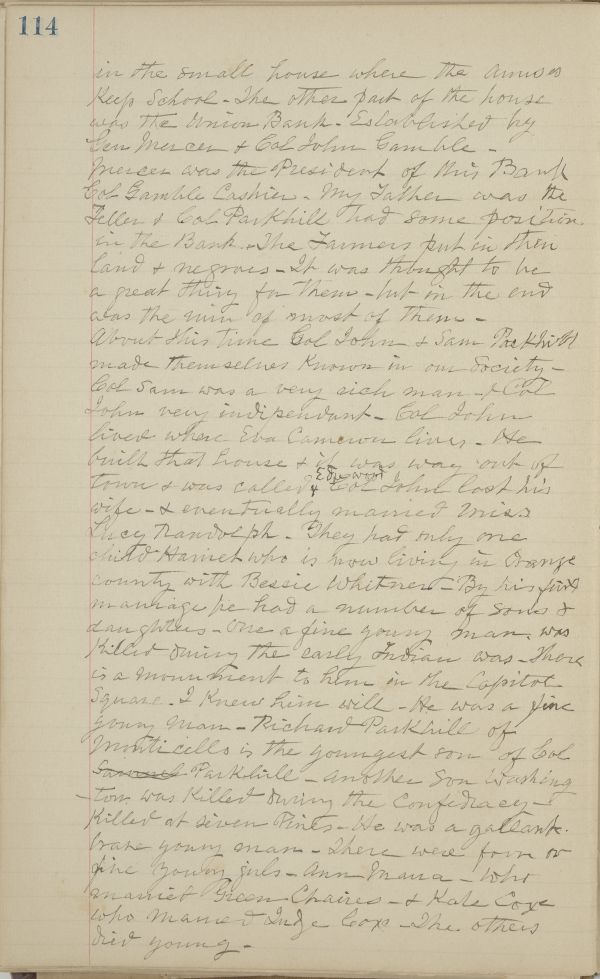 114
in the small house where the
Keep School - The other part of the house
was the Union Bank - Established by
Gen Mercer & Col John Gamble -
Mercer was the President of this Bank
Col Gamble Cashier - My Father was the
Teller & Col Parkhill had some position
in the Bank. The Farmers put in their
land & negroes - It was thought to be
a great thing for them - but in the end
was the ruin of most of them -
About this time Col John & Sam Parkhill
made themselves known in our Society -
Col Sam was a very rich man - & Col
John very independant - Col John
lived where Eva Cameron lives - He
built that house & it was way out of
town & was called & Col John lost his
wife - & eventually married Miss
Lucy Randolph - They had only one
child Harriet who is now living in Orange
county with Bessie Whitner - By his first
marriage he had a number of sons &
daughters - One a fine young man was
Killed during the early Indian was - There
is a monument to him in the Capitol
Square - I Knew him will - He was a fine
young man - Richard Parkhill of
Monticello is the youngest son of Col
Samuel Parkhill - another son Washing
-ton was Killed during the Confedracy -
Killed at seven Pines - He was a gallant
brave young man - There were four or
five young girls - Ann Maria - who
married Green Chaires - & Kate Cox
who married Judge Cox - The others
died young -